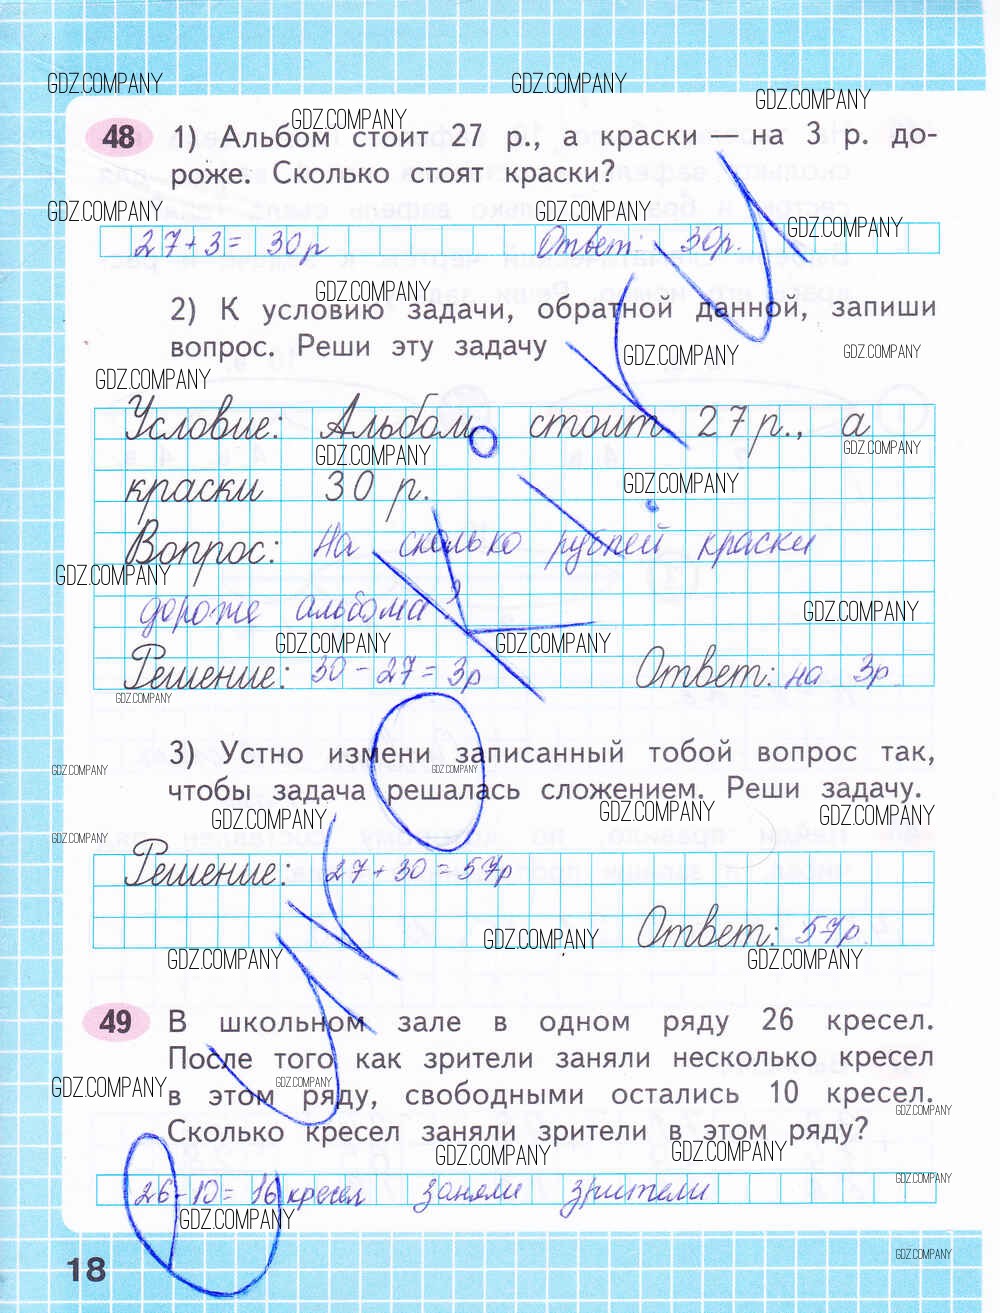 GDZ.COMPANY GDZ.COMPANY
GDZ.COMPANY
GDZ.COMPANY
48 1) Альбом стоит 27 р., а краски — на 3 р. до-
роже. Сколько стоят краски?
GDZ.COMPANY GDZ.COMPANY GDZ.COMPANY
27+3= 30р Ответ: 30р.
GDZ.COMPANY
2) К условию задачи, обратной данной, запиши
вопрос. Реши эту задачу
GDZ.COMPANY GDZ.COMPANY
GDZ.COMPANY
Условие: Альбом стоит 27 р., а
GDZ.COMPANY GDZ.COMPANY
краски 30 р.
GDZ.COMPANY
Вопрос: На сколько рублей краски
GDZ.COMPANY
дороже альбома?
GDZ.COMPANY
GDZ.COMPANY GDZ.COMPANY
Решение: 30 - 27 = 3р Ответ: на 3р.
GDZ.COMPANY
3) Устно измени записанный тобой вопрос так,
GDZ.COMPANY GDZ.COMPANY
чтобы задача решалась сложением. Реши задачу.
GDZ.COMPANY GDZ.COMPANY GDZ.COMPANY
GDZ.COMPANY
Решение: 27+30 = 57р
Ответ: 57р.
GDZ.COMPANY GDZ.COMPANY GDZ.COMPANY
49 В школьном зале в одном ряду 26 кресел.
После того как зрители заняли несколько кресел
GDZ.COMPANY GDZ.COMPANY
в этом ряду, свободными остались 10 кресел.
GDZ.COMPANY
Сколько кресел заняли зрители в этом ряду?
GDZ.COMPANY GDZ.COMPANY
GDZ.COMPANY
26-10= 16 кресел заняли зрители
GDZ.COMPANY
18
GDZ.COMPANY